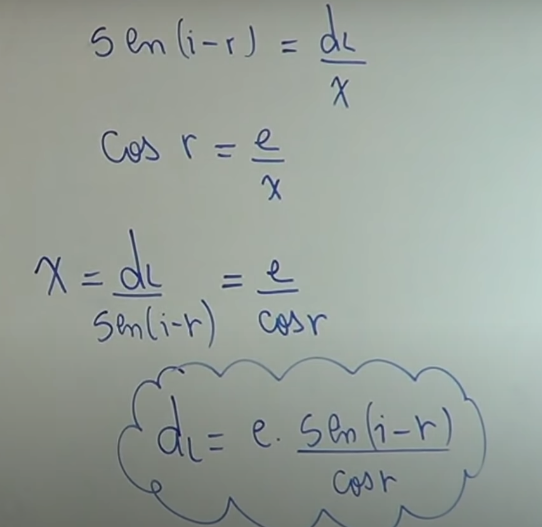 sen(i-r) = dL/x
cos r = e/x
x = dL/sen(i-r) = e/cosr
dL = e. sen(i-r)/cosr